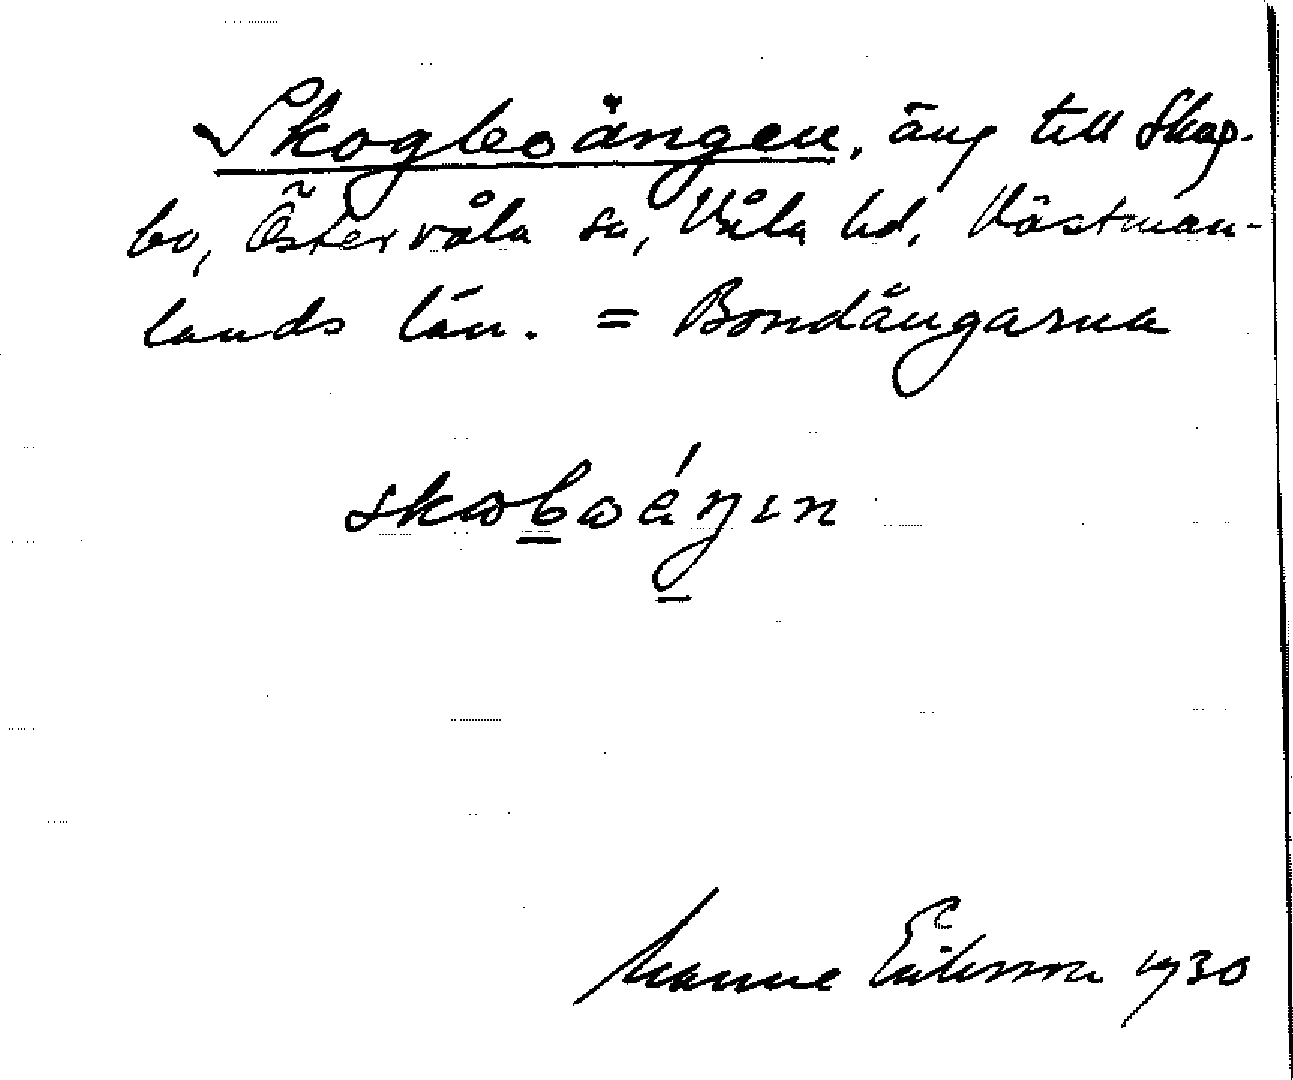 Skogboängen, äng till Skog-
bo, Östervåla sn, Våla hd, Västman-
lands län. = Bondängarna
skωbωéŋɩn
Manne Eriksson 1930